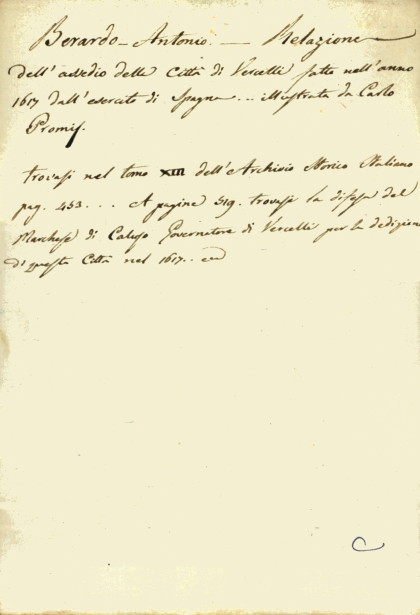 Berardo - Antonio. — Relazione
dell'assedio della Città di Vercelli fatto nell'anno
1617 dall'esercito di Spagna ... illustrata da Carlo
Promis.
trovasi nel tomo XIII dell'Archivio Storico Italiano
pag. 453... A pagine 519. trovasi la difesa del
Marchese di Caluso Governatore di Vercelli per la dedizione
di questa Città nel 1617..
C